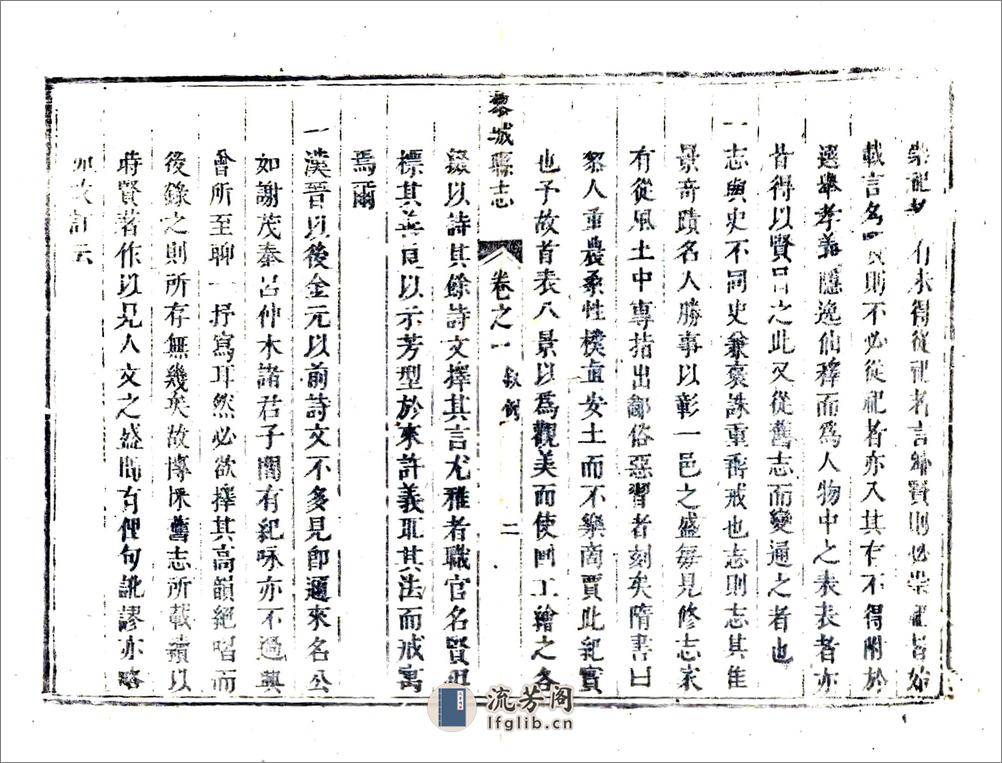 崇祀 有未得從祀者言鄉賢則必崇祀者始
載言名 則不必從祀者亦入其有不得附於
選舉孝義隱逸仙釋而為人物中之表表者亦
昔得以賢目之此又從舊志而變通之者也
一志與史不同史兼褒誅重垂戒也志則志其佳
景奇蹟名人勝事以彰一邑之盛每見修志家
有從風土中專指出鄙俗惡習者刻矣隋書曰
黎人重農桑性樸直安土而不樂商賈此紀實
也予故首表八景以為觀美而使回工繪之各
黎城縣志 卷之一 敘例 二
綴以詩其餘詩文擇其言尤雅者職官名賢
標其善良以示芳型於來許義取其法而戒寓
焉爾
一漢晉以後金元以前詩文不多見卽邇來名公
如謝茂秦呂仲木諸君子閒有紀咏亦不過興
會所至聊一抒寫耳然必欲擇其高韻絕唱而
後錄之則所存無幾矣故博採舊志所載續以
時賢著作以見人文之盛間有俚句訛謬亦略
加改訂云
流芳阁
lfglib.cn